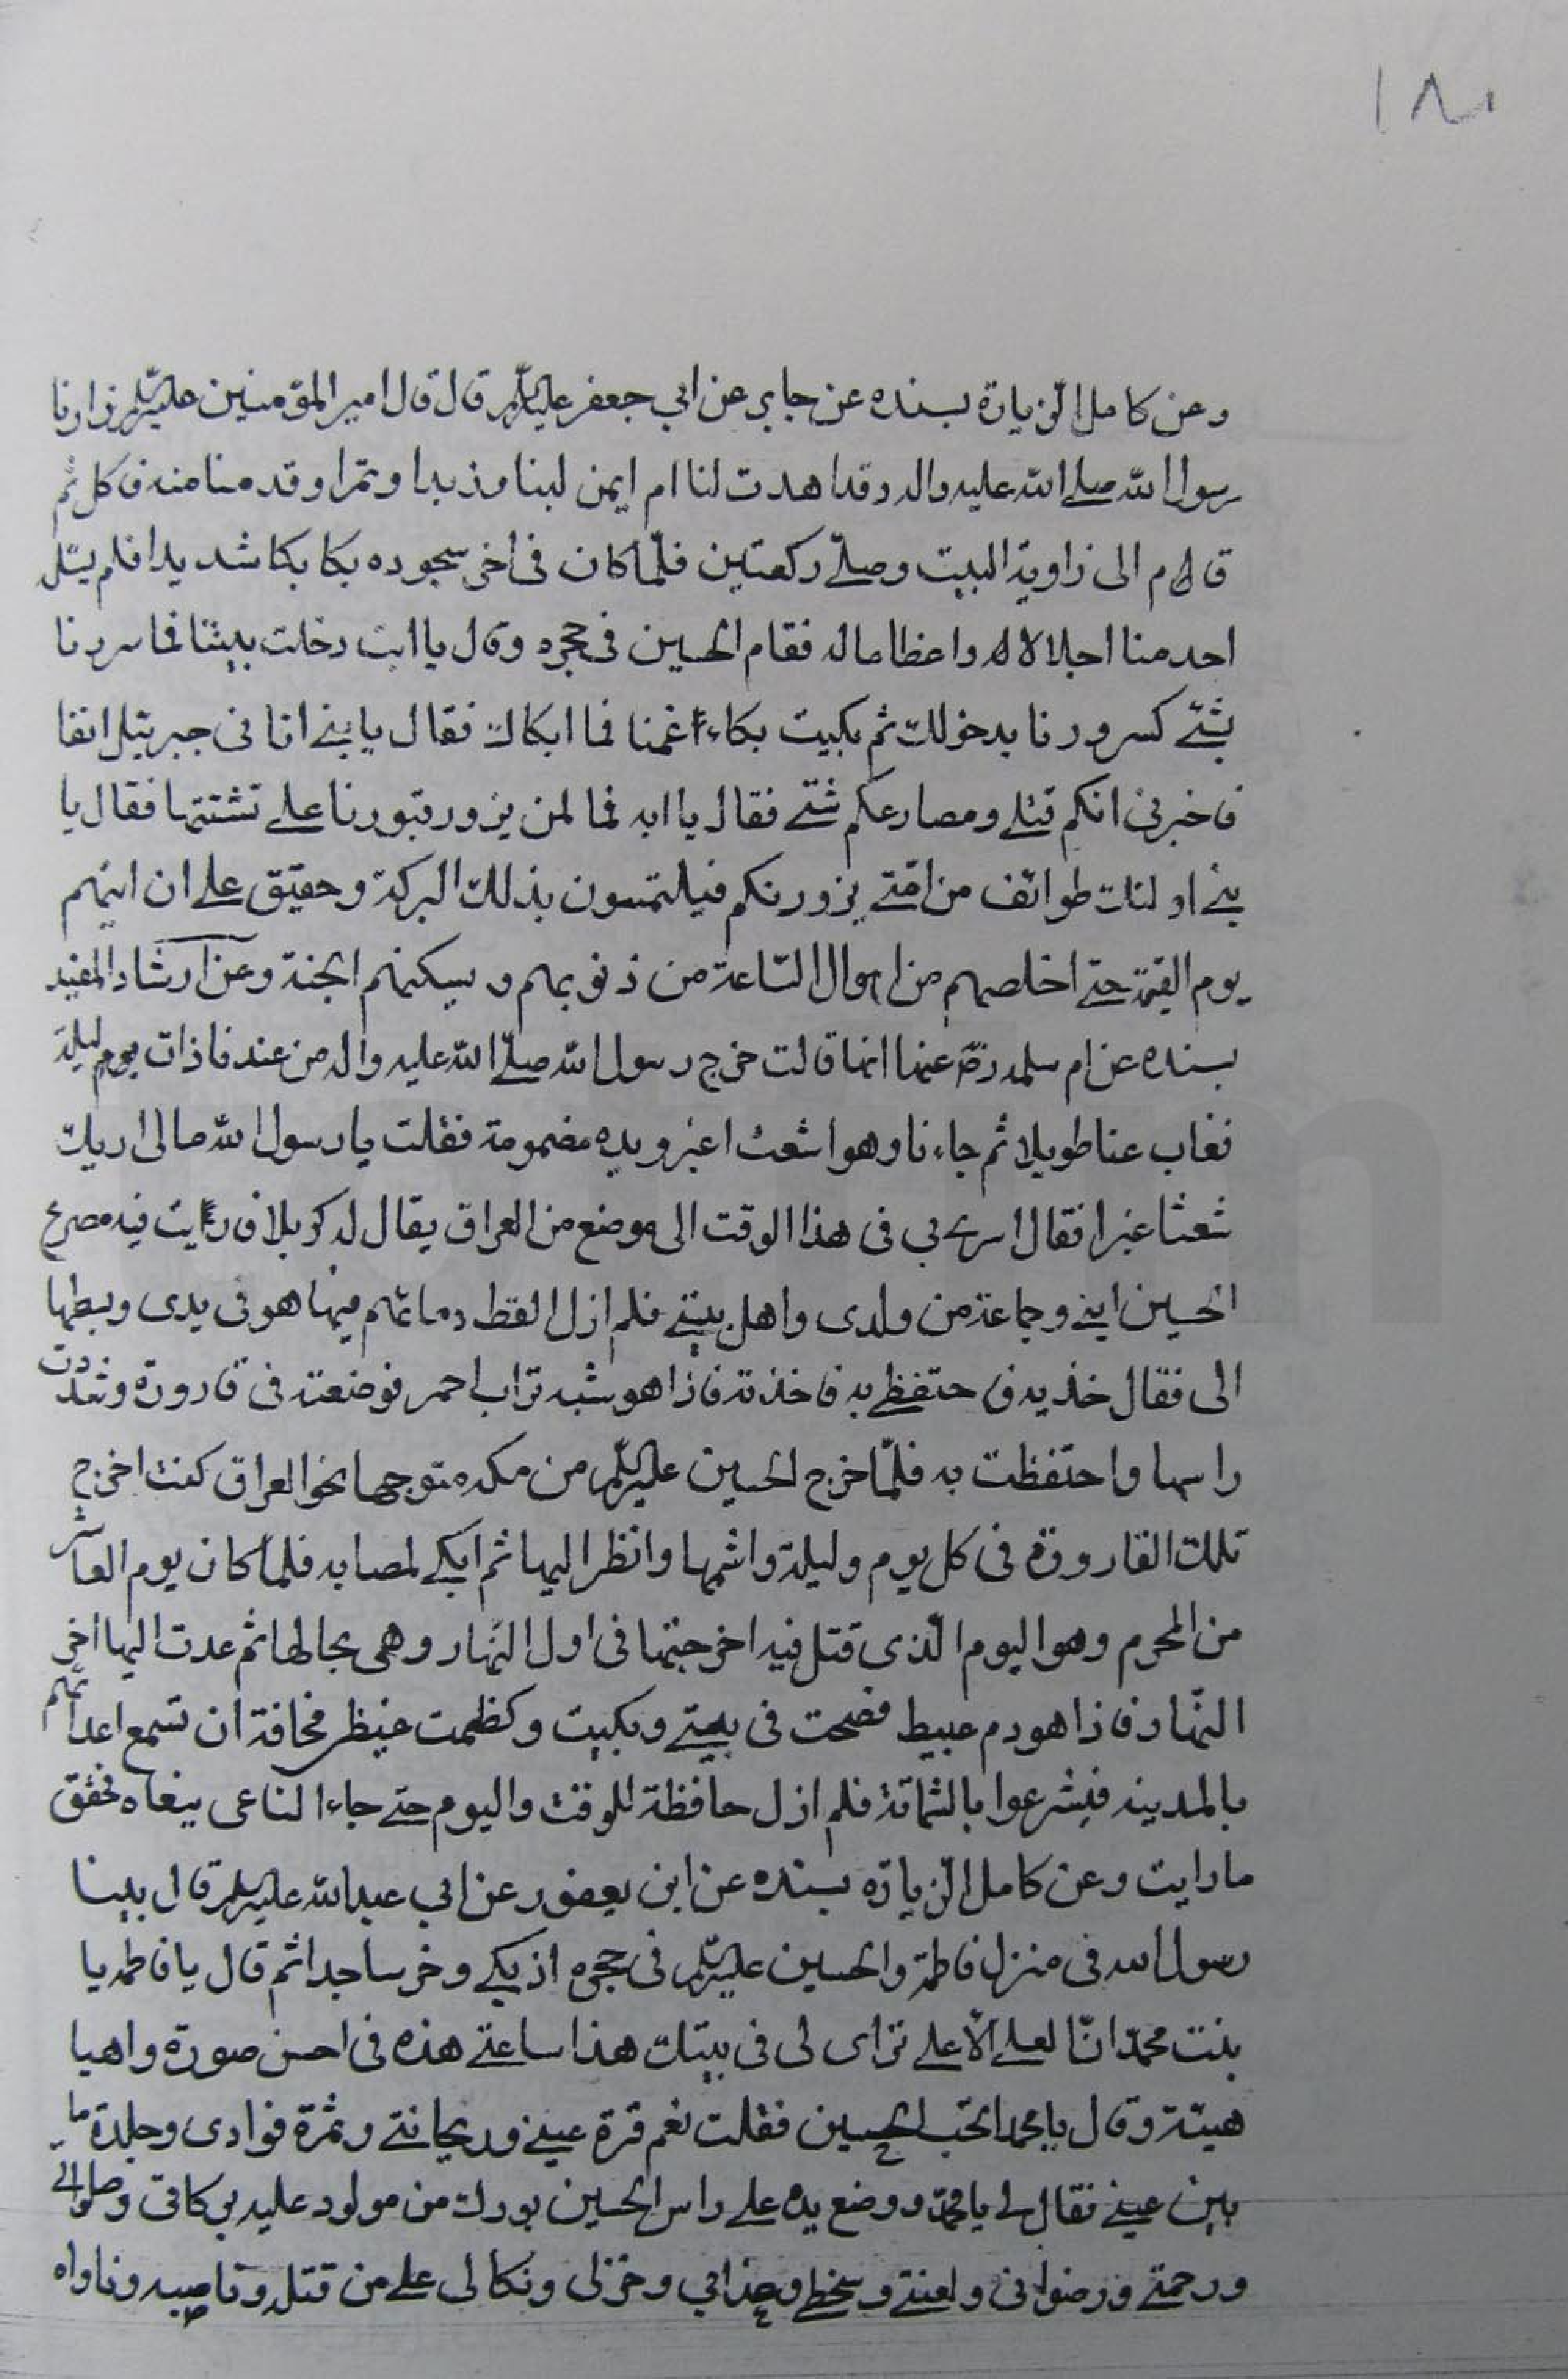 ١٨٠
وعن كامل الزيارة بسنده عن جابر عن ابي جعفر عليه السلم قال قال امير المؤمنين عليه السلم زارنا
رسول الله صلى الله عليه واله وقد اهدت لنا ام ايمن لبنا وزبدا وتمرا وقدمنا منه فاكل ثم
قام الى زاوية البيت وصلى ركعتين فلما كان في اخر سجوده بكا بكا شديدا فلم يسئل
احد منا اجلالا له واعظاما له فقام الحسين في حجره وقال يا ابت دخلت بيتنا فما سررنا
بشئ كسرورنا بدخولك ثم بكيت بكاء غمنا فما ابكاك فقال يا بني اتاني جبرئيل انفا
فاخبرني انكم قتلى ومصارعكم شتى فقال يا ابه فما لمن يزور قبورنا على تشتتها فقال يا
بني اولئك طوائف من امتي يزورنكم فيلتمسون بذلك البركة وحقيق على ان اتيهم
يوم القيمة حتى اخلصهم من اهوال الساعة من ذنوبهم ويسكنهم الجنة وعن ارشاد المفيد
بسنده عن ام سلمه رضي عنها انها قالت خرج رسول الله صلى الله عليه واله من عندنا ذات يوم ليلة
فغاب عنا طويلا ثم جاءنا وهو اشعث اغبر ويده مضمومة فقلت يا رسول الله مالي اريك
شعثا غبرا فقال اسرى بي في هذا الوقت الى موضع من العراق يقال له كربلا فرايت فيه مصرع
الحسين ابني وجماعة من ولدى واهل بيتي فلم ازل القط دمائهم فيها هو في يدى وبسطها
الى فقال خذيه فاحتفظي به فاخذته فاذا هو شبه تراب احمر فوضعته في قارورة وشددت
راسها واحتفظت به فلما خرج الحسين عليه السلم من مكه متوجها نحو العراق كنت اخرج
تلك القارورة في كل يوم وليلة واشمها وانظر اليها ثم ابكي لمصابه فلما كان يوم العاشر
من المحرم وهو اليوم الذى قتل فيه اخرجتها في اول النهار وهي بحالها ثم عدت اليها اخر
النهار فاذا هو دم عبيط فصحت في بيتي وبكيت وكظمت غيظي مخافة ان تسمع اعدائهم
بالمدينه فيشرعوا بالشماتة فلم ازل حافظة للوقت واليوم حتى جاء الناعى ينعاه فحقق
ما رايت وعن كامل الزيارة بسنده عن ابن يعفور عن ابي عبد الله عليه السلم قال بينا
رسول الله في منزل فاطمة والحسين عليه السلم في حجره اذ بكى وخر ساجدا ثم قال يا فاطمه يا
بنت محمد ان العلى الاعلى تراى لى في بيتك هذا ساعتي هذه في احسن صورة واهيا
هيئة وقال يا محمد اتحب الحسين فقلت نعم قرة عيني وريحانتي وثمرة فوادى وجلدة ما
بين عيني فقال لي يا محمد ووضع يده على راس الحسين بورك من مولود عليه بركاتي وصلواتي
ورحمتي ورضواني ولعنتي وسخطي وعذابي وخزلى ونكالى على من قتله وناصبه وناواه